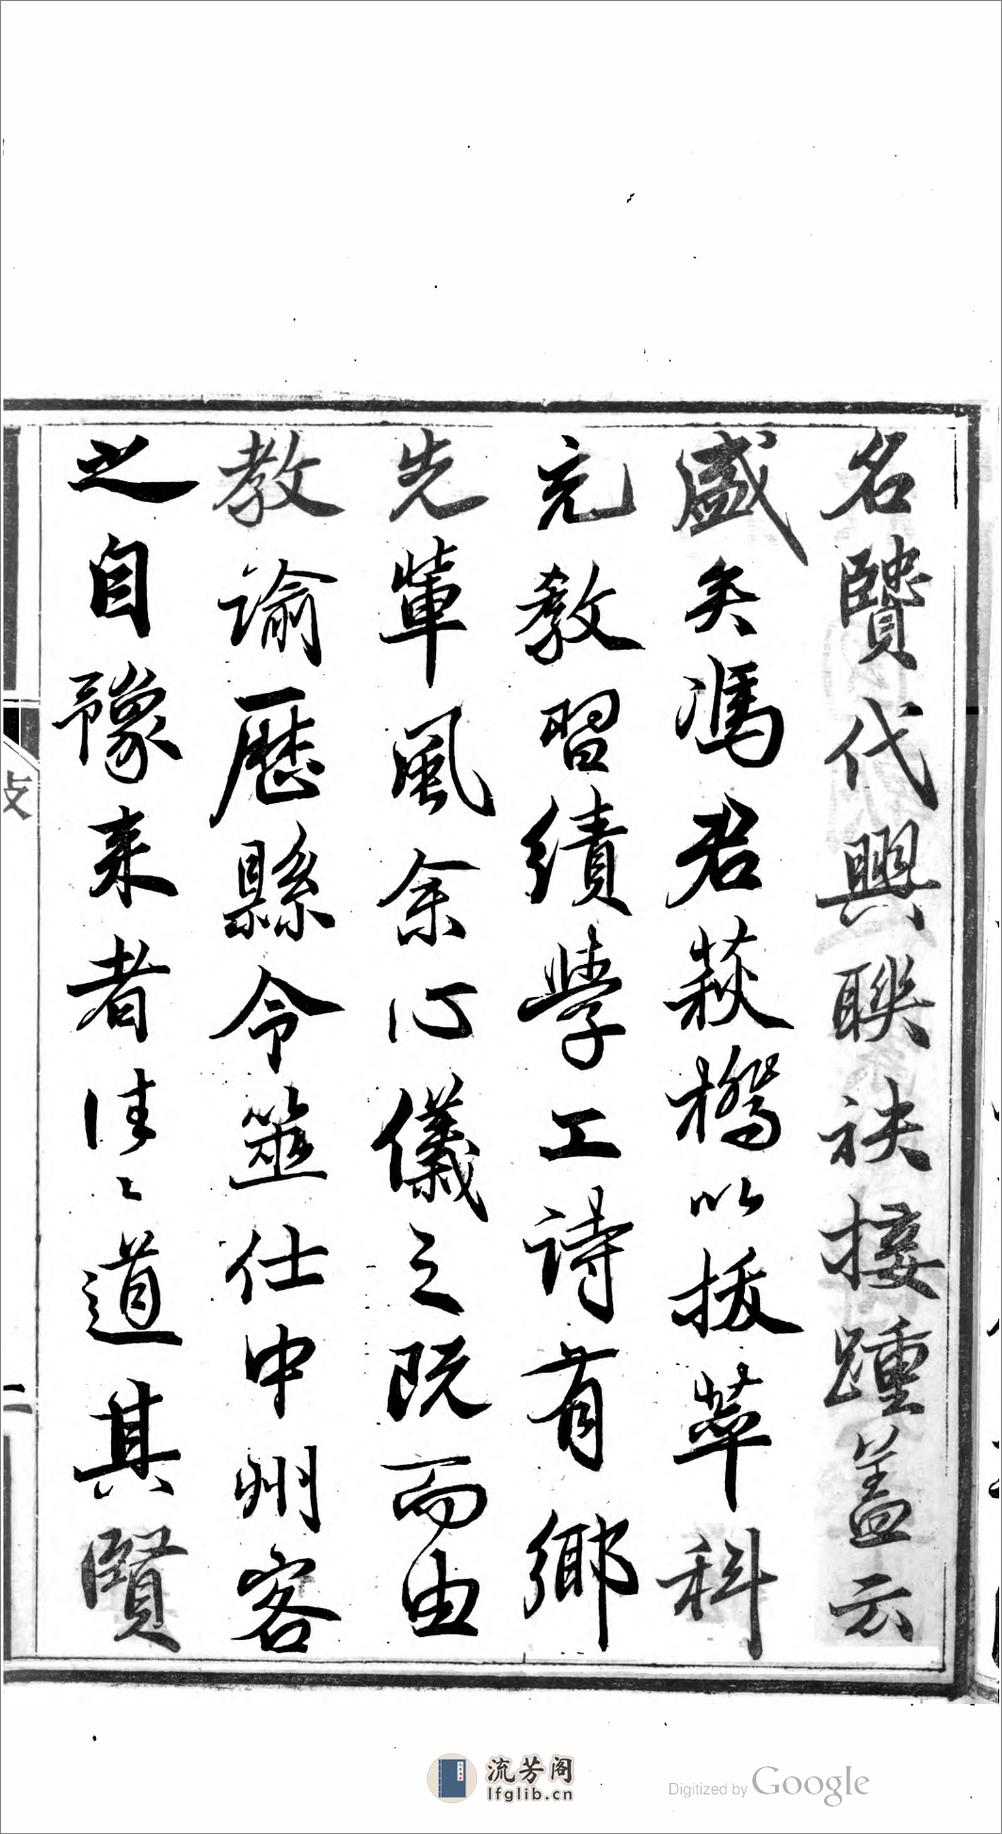 名賢代興聯袂接踵蓋云
盛矣馮君萩橋以拔萃科
充教習績學工詩有鄉
先輩風余心儀之既而由
教諭歷縣令筮仕中州客
之自豫來者津〻道其賢
攷
二
流芳阁
lfglib.cn
Digitized by Google